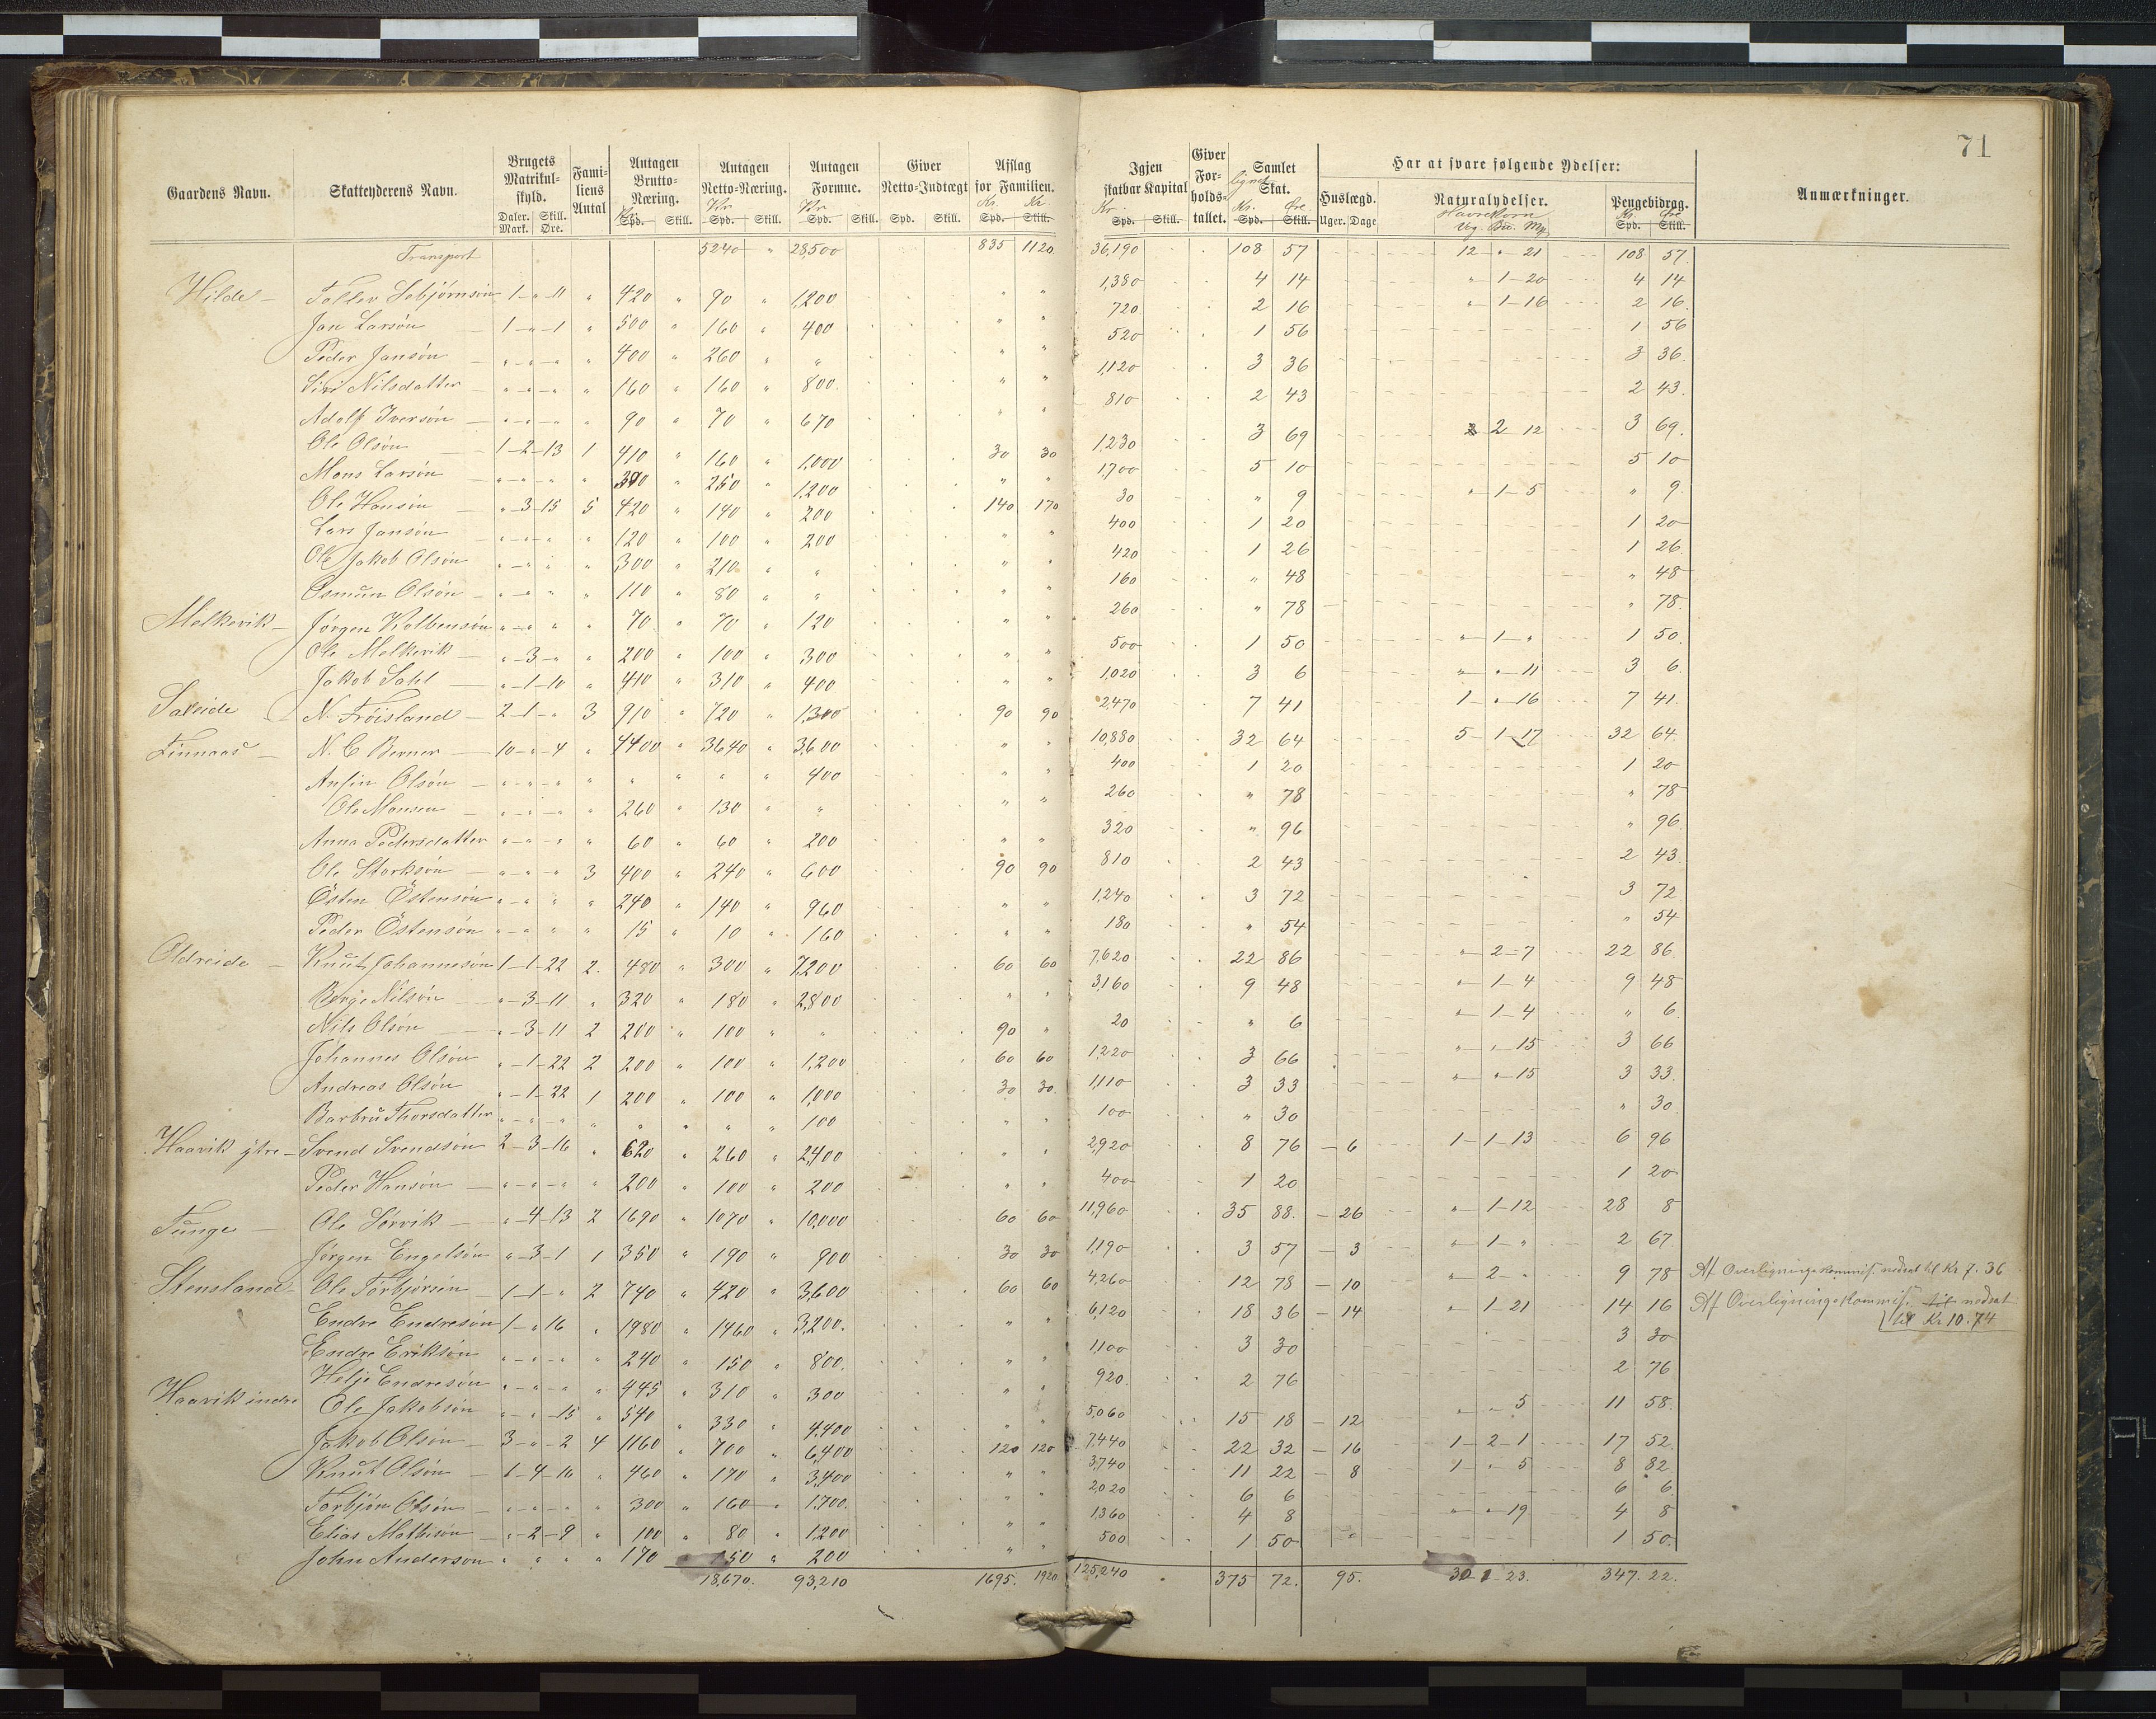 71
Gaardens Navn. Skatteyderens Navn. Brugets Matrikulskyld. Daler. Mark. Skill. Øre. Familiens Antal Antagen Brutto-Næring. Kr. Spd. Skill. Antagen Netto-Næring. Kr. Spd. Skill. Antagen Formue. Kr. Spd. Skill. Giver Netto-Indtægt Spd. Skill. Afslag for Familien. Kr. Kr. Spd. Skill. Igjen skatbar Kapital Kr. Spd. Skill. Giver Forholdstallet. Samlet lignet Skat. Kr. Øre Spd. Skill. Har at svare følgende Ydelser: Huslægd. Uger. Dage Naturalydelser. Havrekorn Vog. Bis. Mk. Pengebidrag. Kr. Øre Spd. Skill. Anmærkninger.
Transport 5240 " 28,500 835 1120 36,190 108 57 12 - " - 21 108 57
Hilde - Toller Sebjørnsøn 1 - " - 11 " 420 " 90 " 1,200 " " 1,380 4 14 " - 1 - 20 4 14
Jan Larsøn 1 - " - 1 " 500 " 160 " 400 " " 720 2 16 " - 1 - 16 2 16
Peder Jansøn " - " - " " 400 " 260 " " " " 520 1 56 1 56
Siri Nilsdatter " - " - " " 160 " 160 " 800 " " 1,120 3 36 3 36
Adolf Iversøn " - " - " " 90 " 70 " 670 " " 810 2 43 2 43
Ole Olsøn 1 - 2 - 13 1 410 " 160 " 1,000 30 30 1,230 3 69 2 12 3 69
Mons Larsøn " - " - " " 390 " 250 " 1,200 " " 1,700 5 10 5 10
Ole Hansøn " - 3 - 15 5 420 " 140 " 200 140 170 30 " 9 " - 1 - 5 " 9
Lars Jansøn " - " - " " 120 " 100 " 200 " " 400 1 20 1 20
Ole Jakob Olsøn " - " - " " 300 " 210 " " " " 420 1 26 1 26
Osmun Olsøn " - " - " " 110 " 80 " " " " 160 " 48 " 48
Melkevik - Jørgen Kolbensøn " - " - " " 70 " 70 " 120 " " 260 " 78 " 78
Ole Melkevik " - 3 - " " 200 " 100 " 300 " " 500 1 50 " - 1 - " 1 50
Jakob Sahl " - 1 - 10 " 410 " 310 " 400 " " 1,020 3 6 " - " - 11 3 6
Sakseide - N. Frøisland 2 - 1 - " 3 910 " 720 " 1,300 90 90 2,470 7 41 1 - " - 16 7 41
Finnaas - N. C. Berner 10 - " - 4 " 4400 " 3640 " 3,600 " " 10,880 32 64 5 - 1 - 17 32 64
Anfin Olsøn " - " - " " " " " " 400 " " 400 1 20 1 20
Ole Monsen " - " - " " 260 " 130 " " " " 260 " 78 " 78
Anna Pedersdatter " - " - " " 60 " 60 " 200 " " 320 " 96 " 96
Ole Storksøn " - " - " 3 400 " 240 " 600 90 90 810 2 43 2 43
Østen Østensøn " - " - " " 240 " 140 " 960 " " 1,240 3 72 3 72
Peder Østensøn " - " - " " 15 " 10 " 160 " " 180 " 54 " 54
Oldreide - Knut Johannesøn 1 - 1 - 22 2 480 " 300 " 7,200 60 60 7,620 22 86 " - 2 - 7 22 86
Børge Nilsøn " - 3 - 11 " 320 " 180 " 2,800 " " 3,160 9 48 " - 1 - 4 9 48
Nils Olsøn " - 3 - 11 2 200 " 100 " " 90 " 20 " 6 " - 1 - 4 " 6
Johannes Olsøn " - 1 - 22 2 200 " 100 " 1,200 60 60 1,220 3 66 " - " - 15 3 66
Andreas Olsøn " - 1 - 22 1 200 " 100 " 1,000 30 30 1,110 3 33 " - " - 15 3 33
Barbru Thorsdatter " - " - " " " " " " 100 " " 100 " 30 " 30
Haavik ytre - Svend Svendsøn 2 - 3 - 16 " 620 " 260 " 2,400 " " 2,920 8 76 - 6 1 - 1 - 13 6 96
Peder Hansøn " - " - " " 200 " 100 " 200 " " 400 1 20 1 20
Tunge - Ole Sørvik " - 4 - 13 2 1690 " 1070 " 10,000 60 60 11,960 35 88 - 26 " - 1 - 12 28 8
Jørgen Engelsøn " - 3 - 1 1 350 " 190 " 900 30 30 1,190 3 57 - 3 " - 1 - " 2 67
Stensland - Ole Torbjørsen 1 - 1 - " 2 740 " 420 " 3,600 60 60 4,260 12 78 - 10 " - 2 - " 9 78 Af Overligningskommis. nedsat til Kr 7.36
Endre Endresøn 1 - " - 16 " 1980 " 1460 " 3,200 " " 6,120 18 36 - 14 " - 1 - 21 14 16 Af Overligningskommis. til nedsat
til Kr. 10.74
Endre Eriksøn " - " - " " 240 " 150 " 800 " " 1,100 3 30 3 30
Helje Endresøn " - " - " " 445 " 310 " 300 " " 920 2 76 2 76
Haavik indre Ole Jakobsøn " - " - 15 " 540 " 330 " 4,400 " " 5,060 15 18 - 12 " - " - 5 11 58
Jakob Olsøn 3 - " - 2 4 1160 " 700 " 6,400 120 120 7,440 22 32 - 16 1 - 2 - 1 17 52
Knut Olsøn 1 - 4 - 16 " 460 " 170 " 3,400 " " 3,740 11 22 - 8 1 - " - 5 8 82
Torbjøn Olsøn " - " - " " 300 " 160 " 1,700 " " 2,020 6 6 6 6
Elias Mathisøn " - 2 - 9 " 100 " 80 " 1,200 " " 1,360 4 8 " - " - 19 4 8
John Anderson " " " " 170 150 " 200 " " 500 1 50 1 50
18,670. 93,210 1695. 1920 125,240 375 72. 95. 30 - 1 - 23. 347. 22.